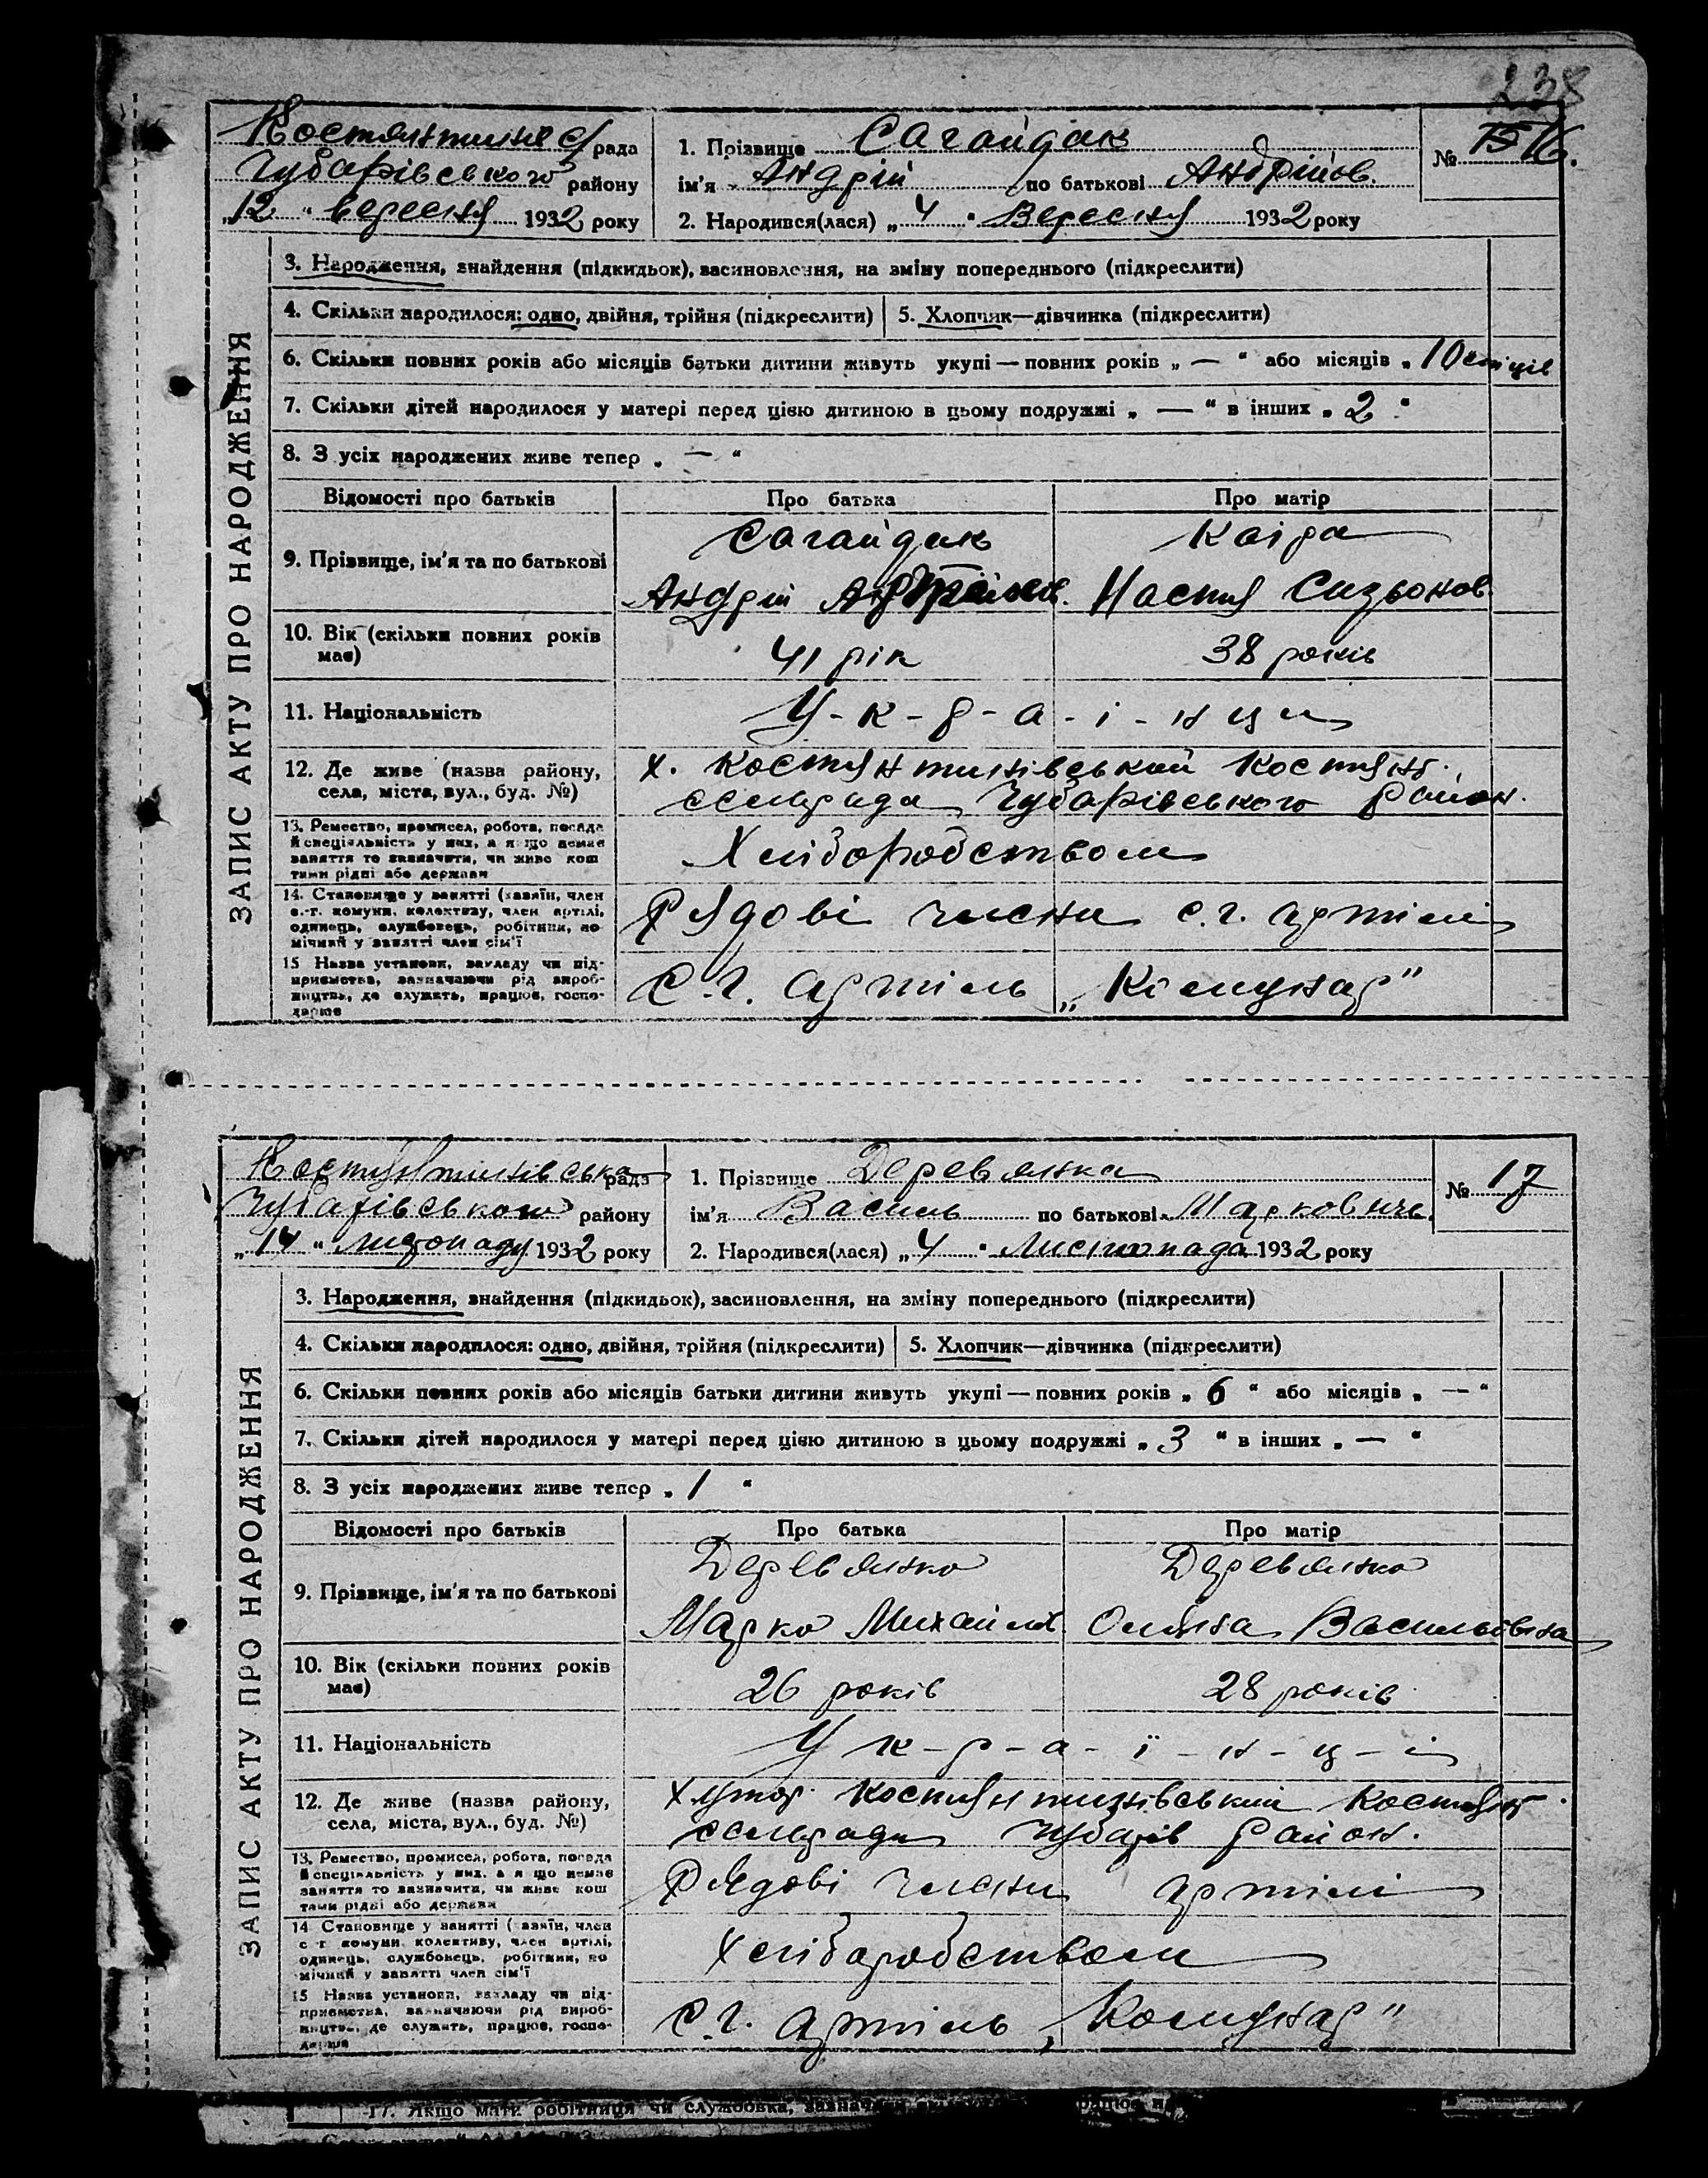 238
Костянтинів с/рада
Чубарівського району
„12“ вересня 1932 року
1. Прізвище Сагайдак
ім'я Андрій по батькові Андрійов.
2. Народився(лася) „4“ Вересня 1932 року
№ 15 16.
ЗАПИС АКТУ ПРО НАРОДЖЕННЯ
3. Народження, знайдення (підкидьок), засиновлення, на зміну попереднього (підкреслити)
4. Скільки народилося: одно, двійня, трійня (підкреслити) 5. Хлопчик—дівчинка (підкреслити)
6. Скільки повних років або місяців батьки дитини живуть укупі — повних років „ — “ або місяців „ 10
7. Скільки дітей народилося у матері перед цією дитиною в цьому подружжі „ — “ в інших „ 2 “
8. З усіх народжених живе тепер „ — “
Відомості про батьків Про батька Про матір
9. Прізвище, ім'я та по батькові
Сагайдак Каіра
Андрій Настя Сизьонов.
10. Вік (скільки повних років має) 41 рік 38 років
11. Національність У-к-р-а-і-нци
12. Де живе (назва району, села, міста, вул., буд. №)
х. Костянтинівський Костянт.
сельрада Чубарівського район.
13. Ремество, промисел, робота, посада
й спеціяльність у них, а якщо немає
заняття то зазначити, чи живе кош
тами рідні або держави
Хліборобством
14. Становище у занятті (хазяїн, член
с.-г. комуни, колективу, член артілі,
одинець, службовець, робітник, по
мічний у занятті член сім'ї
Рядові члени с.г. артілі
15 Назва установи, закладу чи під-
приємства, зазначаючи рід вироб-
ництва, де служить, працює, госпо-
дарює
С.г. артіль „Комунар”
Костянтинівська рада
Чубарівського району
„14“ листопаду 1932 року
1. Прізвище Деревянка
ім'я Василь по батькові Маркович.
2. Народився(лася) „4“ Листопада 1932 року
№ 17
ЗАПИС АКТУ ПРО НАРОДЖЕННЯ
3. Народження, знайдення (підкидьок), засиновлення, на зміну попереднього (підкреслити)
4. Скільки народилося: одно, двійня, трійня (підкреслити) 5. Хлопчик—дівчинка (підкреслити)
6. Скільки повних років або місяців батьки дитини живуть укупі — повних років „ 6 “ або місяців „ — “
7. Скільки дітей народилося у матері перед цією дитиною в цьому подружжі „ 3 “ в інших „ — “
8. З усіх народжених живе тепер „ 1 “
Відомості про батьків Про батька Про матір
9. Прізвище, ім'я та по батькові
Деревянко Деревянко
Марко Михайлов. Оляна Васильовна
10. Вік (скільки повних років має) 26 років 28 років
11. Національність У к-р-а-ї-н-ц-і
12. Де живе (назва району, села, міста, вул., буд. №)
Хутор Костянтинівський Костянт.
сельради Чубарів район.
13. Ремество, промисел, робота, посада
й спеціяльність у них, а якщо немає
заняття то зазначити, чи живе кош
тами рідні або держави
Рядові члени артілі
14 Становище у занятті (хазяїн, член
с.-г. комуни колективу, член артілі,
одинець, службовець, робітник, по
мічний у занятті член сім'ї
Хліборобством
15 Назва установи, закладу чи під-
приємства, зазначаючи рід вироб-
ництва, де служить, працює, госпо-
дарює
С.г. артіль „Комунар”
17. Якщо мати робітниця чи службовка,